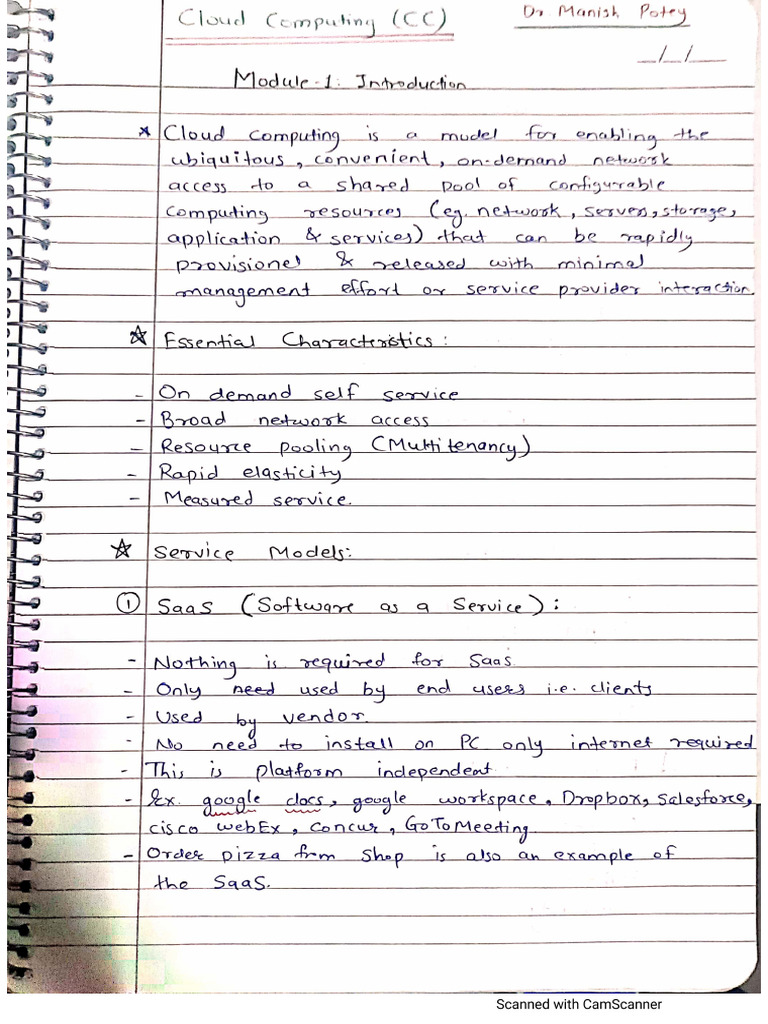 Cloud Computing (CC)
Dr. Manish Potey
_/_/__
Module-1: Introduction
* Cloud Computing is a model for enabling the
ubiquitous, convenient, on-demand network
access to a shared pool of configurable
computing resources (eg. network, servers, storage,
application & services) that can be rapidly
provisioned & released with minimal
management effort or service provider interaction.
☆ Essential Characteristics:
- On demand self service
- Broad network access
- Resource pooling (Multitenancy)
- Rapid elasticity
- Measured service.
☆ Service Models:
① SaaS (Software as a Service):
- Nothing is required for SaaS
- Only need used by end users i.e. clients
- Used by vendor.
- No need to install on PC only internet required
- This is platform independent
- Ex. google docs, google workspace, Dropbox, Salesforce,
cisco webEx, concur, GoToMeeting.
- Order pizza from shop is also an example of
the SaaS.
Scanned with CamScanner